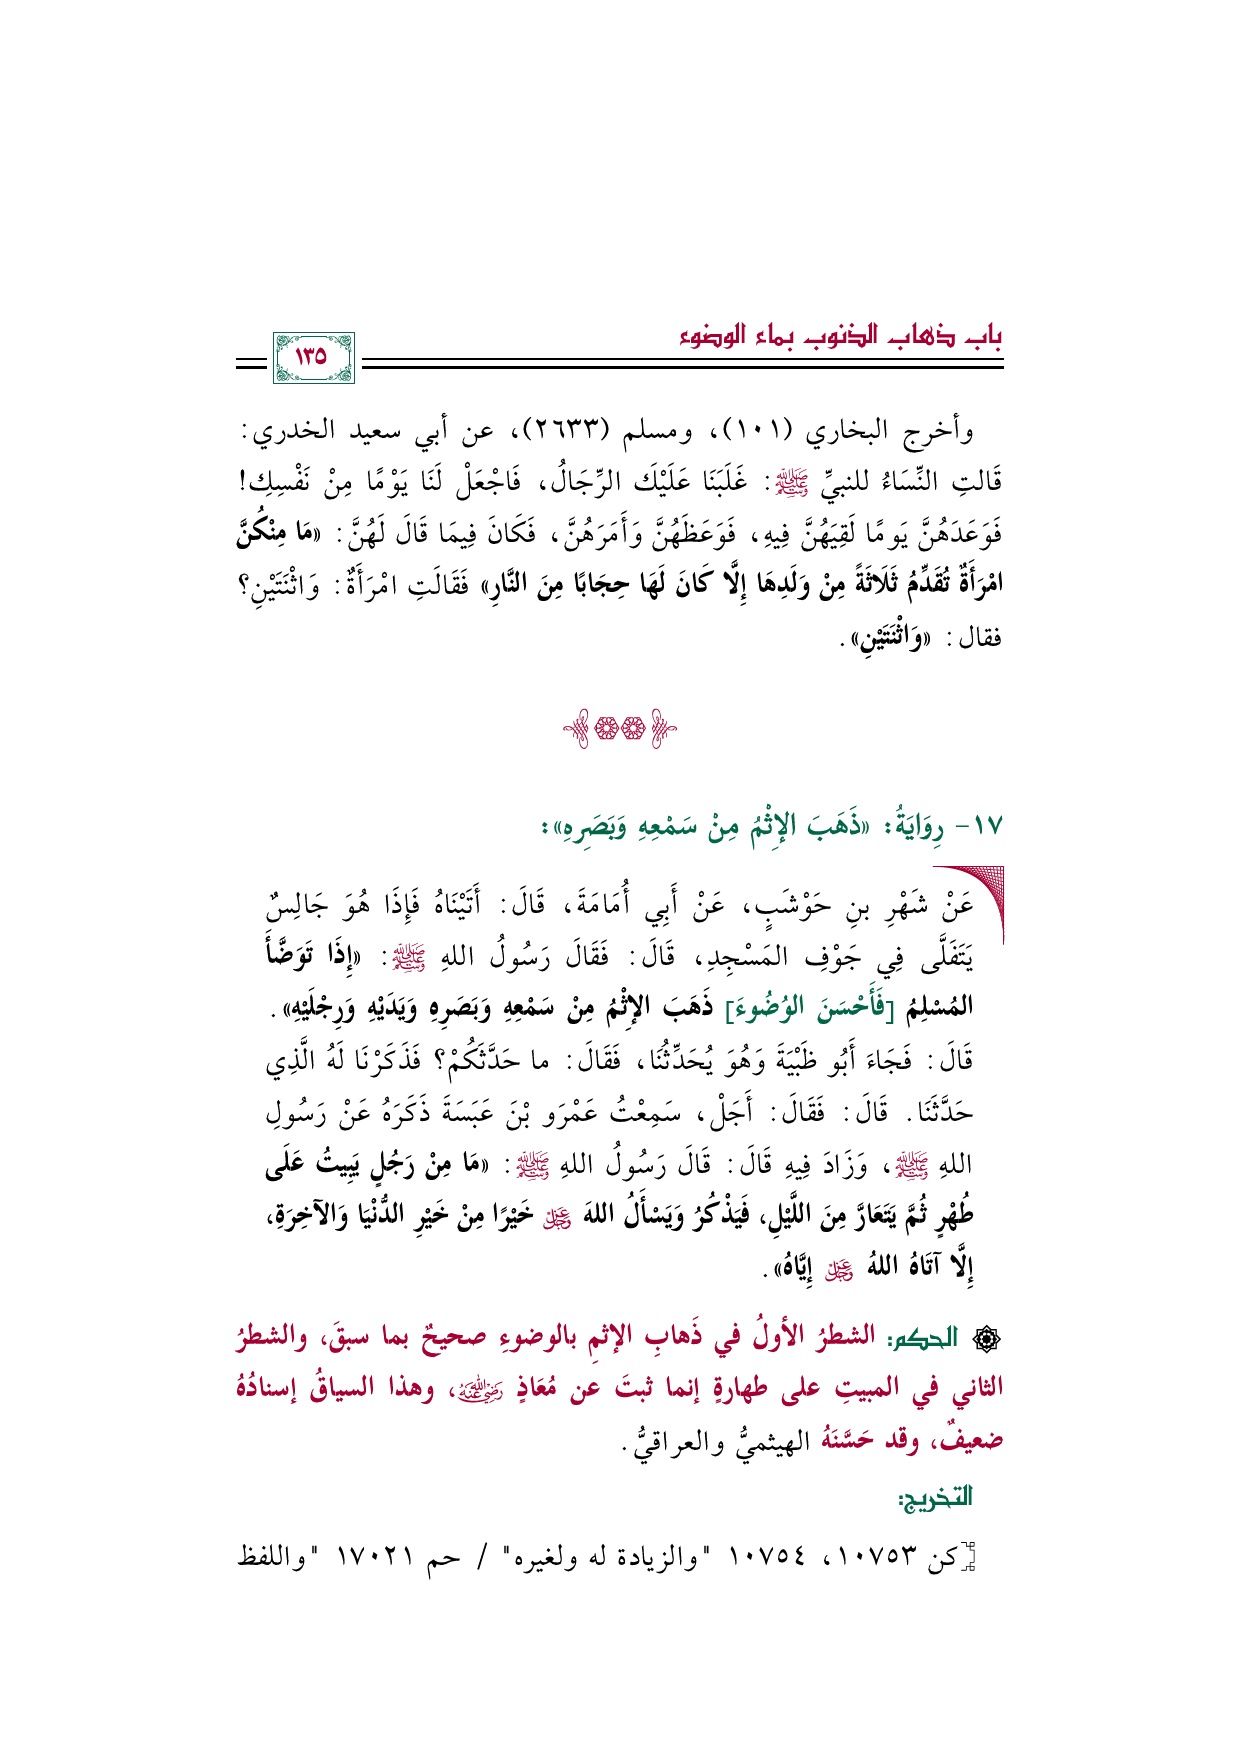 باب ذهاب الذنوب بماء الوضوء
١٣٥
وأخرج البخاري (١٠١)، ومسلم (٢٦٣٣)، عن أبي سعيد الخدري:
قَالتِ النِّسَاءُ للنبيِّ ﷺ: غَلَبَنَا عَلَيْكَ الرِّجَالُ، فَاجْعَلْ لَنَا يَوْمًا مِنْ نَفْسِكِ!
فَوَعَدَهُنَّ يَومًا لَقِيَهُنَّ فِيهِ، فَوَعَظَهُنَّ وَأَمَرَهُنَّ، فَكَانَ فِيمَا قَالَ لَهُنَّ: «مَا مِنْكُنَّ
امْرَأَةٌ تُقَدِّمُ ثَلَاثَةً مِنْ وَلَدِهَا إِلَّا كَانَ لَهَا حِجَابًا مِنَ النَّارِ» فَقَالَتِ امْرَأَةٌ: وَاثْنَتَيْنِ؟
فقال: «وَاثْنَتَيْنِ».
١٧- رِوَايَةُ: «ذَهَبَ الإِثْمُ مِنْ سَمْعِهِ وَبَصَرِهِ»:
عَنْ شَهْرِ بنِ حَوْشَبٍ، عَنْ أَبِي أُمَامَةَ، قَالَ: أَتَيْنَاهُ فَإِذَا هُوَ جَالِسٌ
يَتَفَلَّى فِي جَوْفِ المَسْجِدِ، قَالَ: فَقَالَ رَسُولُ اللهِ ﷺ: «إِذَا تَوَضَّأَ
المُسْلِمُ [فَأَحْسَنَ الوُضُوءَ] ذَهَبَ الإِثْمُ مِنْ سَمْعِهِ وَبَصَرِهِ وَيَدَيْهِ وَرِجْلَيْهِ».
قَالَ: فَجَاءَ أَبُو ظَبْيَةَ وَهُوَ يُحَدِّثُنَا، فَقَالَ: ما حَدَّثَكُمْ؟ فَذَكَرْنَا لَهُ الَّذِي
حَدَّثَنَا. قَالَ: فَقَالَ: أَجَلْ، سَمِعْتُ عَمْرَو بْنَ عَبَسَةَ ذَكَرَهُ عَنْ رَسُولِ
اللهِ ﷺ، وَزَادَ فِيهِ قَالَ: قَالَ رَسُولُ اللهِ ﷺ: «مَا مِنْ رَجُلٍ يَبِيتُ عَلَى
طُهْرٍ ثُمَّ يَتَعَارَّ مِنَ اللَّيْلِ، فَيَذْكُرُ وَيَسْأَلُ اللهَ عَزَّ وَجَلَّ خَيْرًا مِنْ خَيْرِ الدُّنْيَا وَالآخِرَةِ،
إِلَّا آتَاهُ اللهُ عَزَّ وَجَلَّ إِيَّاهُ».
الحكم: الشطرُ الأولُ في ذَهابِ الإثمِ بالوضوءِ صحيحٌ بما سبقَ، والشطرُ
الثاني في المبيتِ على طهارةٍ إنما ثبتَ عن مُعَاذٍ رَضِيَ اللهُ عَنْهُ، وهذا السياقُ إسنادُهُ
ضعيفٌ، وقد حَسَّنَهُ الهيثميُّ والعراقيُّ.
التخريج:
[كن ١٠٧٥٣، ١٠٧٥٤ "والزيادة له ولغيره" / حم ١٧٠٢١ "واللفظ